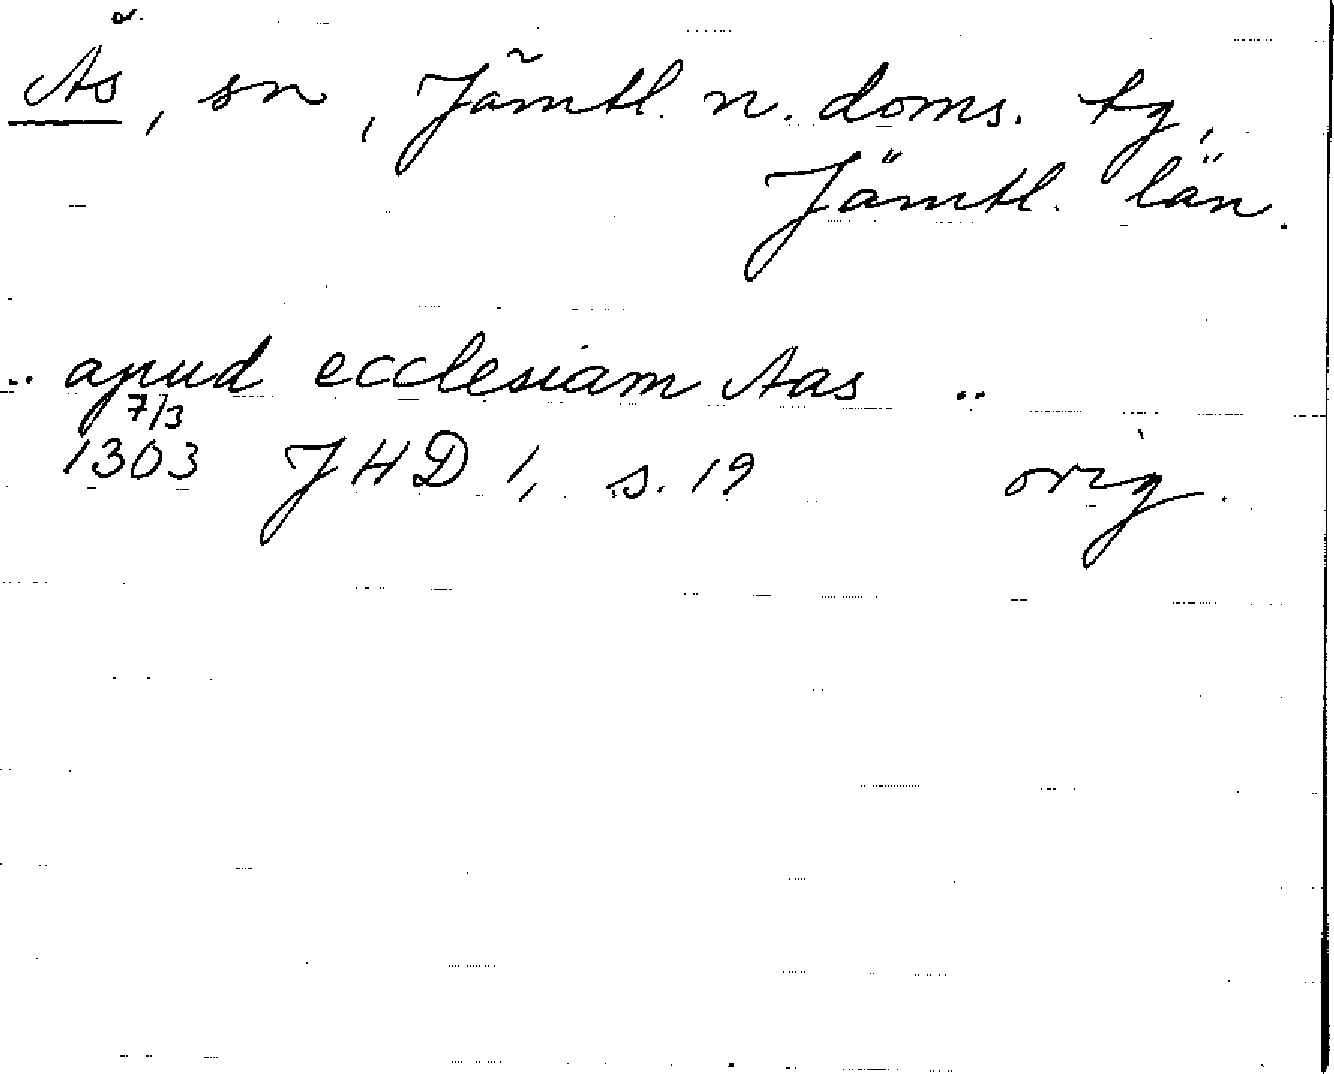 Ås, sn, Jämtl. n. doms. tg,
Jämtl. län.
.. apud ecclesiam Aas ..
7/3
1303 JHD 1, s. 19 orig.